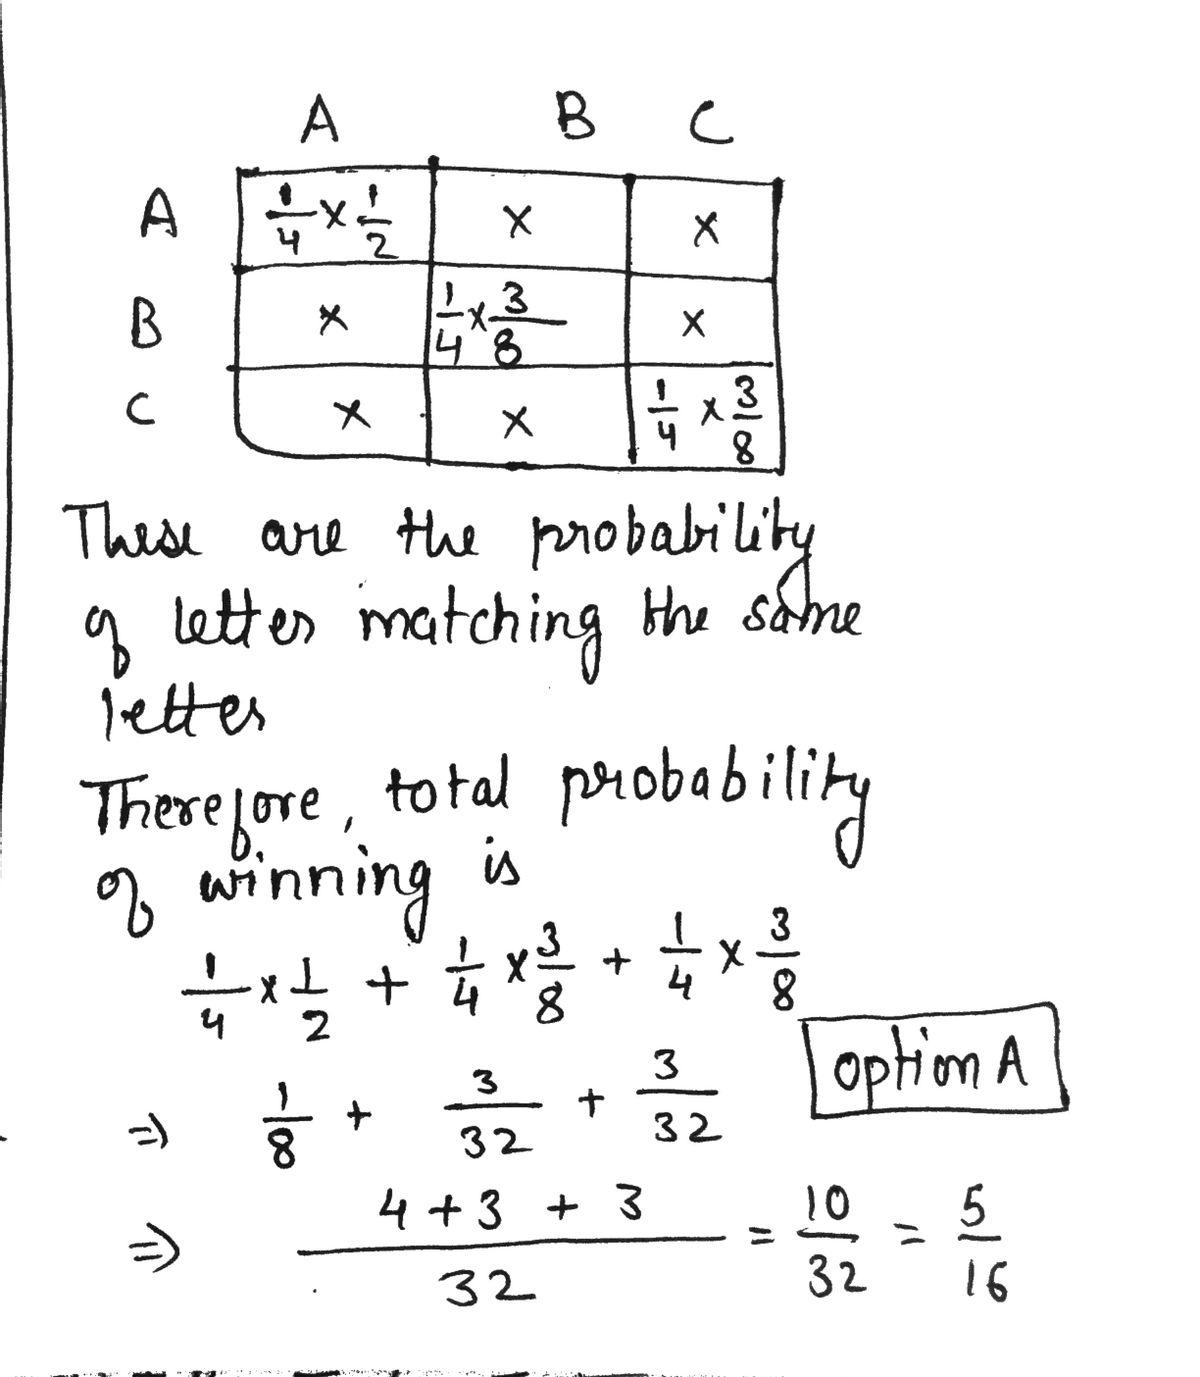 A B C
A 1/4 × 1/2 × ×
B × 1/4 × 3/8 ×
C × × 1/4 × 3/8
These are the probability
of letter matching the same
letter
Therefore, total probability
of winning is
1/4 × 1/2 + 1/4 × 3/8 + 1/4 × 3/8
option A
⇒ 1/8 + 3/32 + 3/32
⇒ (4 + 3 + 3)/32 = 10/32 = 5/16